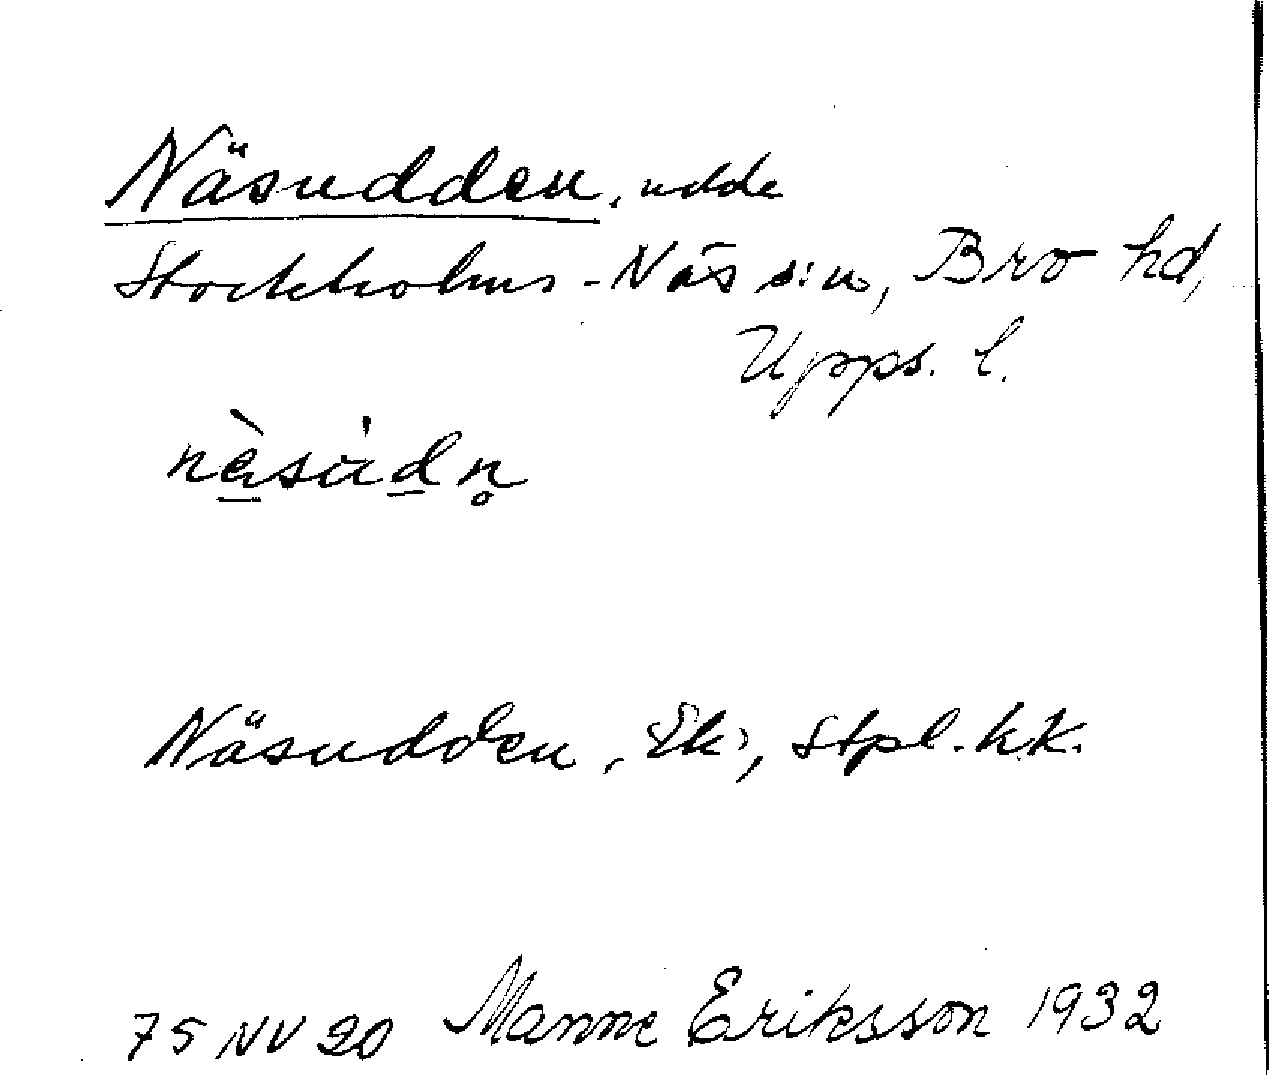 Näsudden, udde
Stockholms-Näs s:n, Bro hd,
Upps. l.
nä̀sùdn̥
Näsudden, Ek, Stpl. kk.
75 NV 20 Manne Eriksson 1932